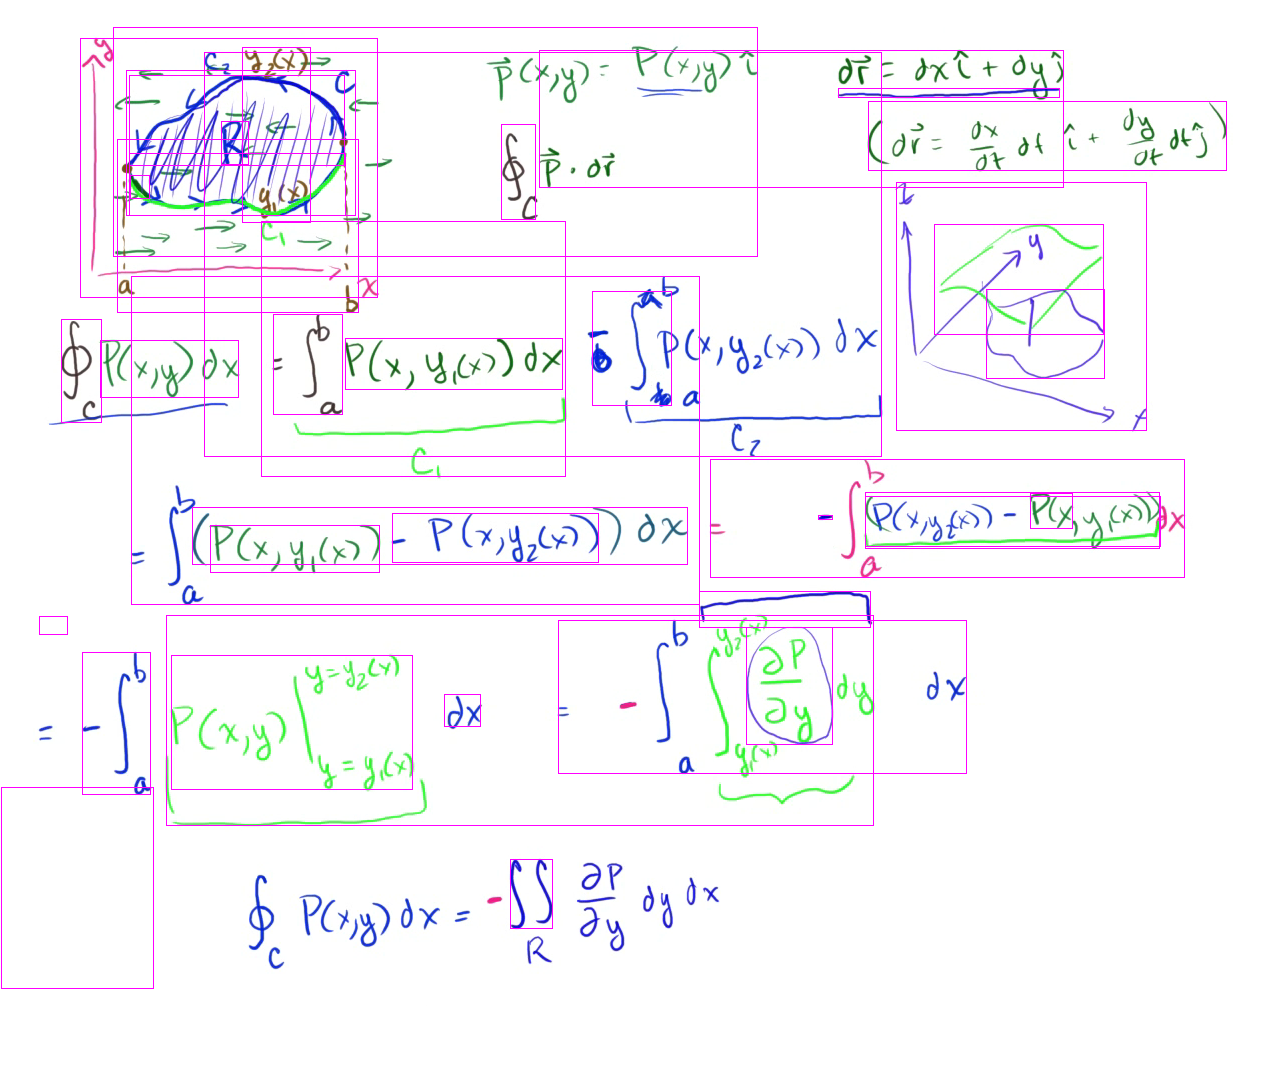 y
c₂ y₂(x)
C
R
y₁(x)
C₁
a b x
P⃗(x,y) = P(x,y) î
dr⃗ = dx î + dy ĵ
(dr⃗ = dx/dt dt î + dy/dt dt ĵ)
∮_C P⃗ · dr⃗
y
x
∮_C P(x,y) dx = ∫_a^b P(x, y₁(x)) dx - ∫_a^b P(x, y₂(x)) dx
C₁ C₂
= ∫_a^b (P(x, y₁(x)) - P(x, y₂(x))) dx = - ∫_a^b (P(x,y₂(x)) - P(x,y₁(x))) dx
= - ∫_a^b P(x,y) |_{y = y₁(x)}^{y = y₂(x)} dx = - ∫_a^b ∫_{y₁(x)}^{y₂(x)} ∂P/∂y dy dx
∮_C P(x,y) dx = - ∬_R ∂P/∂y dy dx